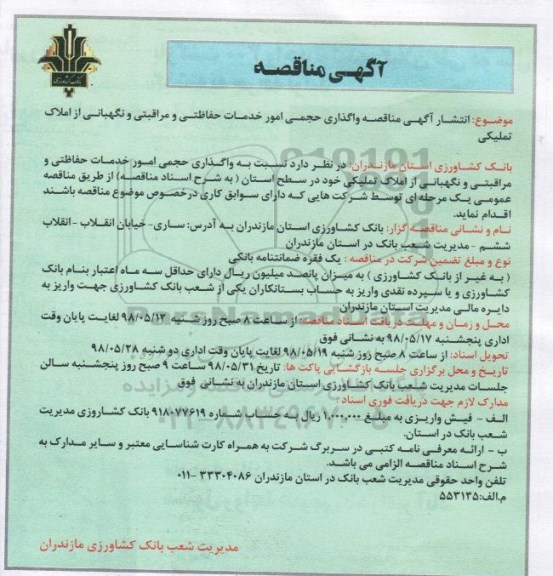 بانک کشاورزی
آگهـی مناقصـه
موضوع: انتشار آگهـی مناقصه واگذاری حجمـی امور خدمات حفاظتـی و مراقبتی و نگهبانـی از املاک
تملیکی
بانـک کشـاورزی اسـتان مازنـدران: در نظـر دارد نسـبت بـه واگـذاری حجمـی امـور خدمـات حفاظتـی و
مراقبتـی و نگهبانـی از امـلاک تملیکـی خـود در سـطح اسـتان ( به شـرح اسـناد مناقصـه) از طریق مناقصه
عمومـی یـک مرحلـه ای توسـط شـرکت هایـی کـه دارای سـوابق کاری درخصـوص موضوع مناقصه باشـند
اقـدام نماید.
نـام و نشـانی مناقصـه گزار: بانک کشـاورزی اسـتان مازندران به آدرس: سـاری- خیابان انقـلاب -انقلاب
ششـم - مدیریت شـعب بانک در اسـتان مازندران
نوع و مبلغ تضمین شرکت در مناقصه : یک فقره ضمانتنامه بانکی
( بـه غیـر از بانـک کشـاورزی ) به میـزان پانصـد میلیون ریـال دارای حداقل سـه مـاه اعتبار بنـام بانک
کشـاورزی و یا سـپرده نقدی واریز به حسـاب بسـتانکاران یکی از شـعب بانک کشـاورزی جهـت واریز به
دایـره مالی مدیریت اسـتان مازندران
محـل و زمـان و مهلـت دریافت اسـناد مناقصه: از سـاعت ۸ صبح روز شـنبه ۹۸/۰۵/۱۲ لغایـت پایان وقت
اداری پنجشـنبه ۹۸/۰۵/۱۷ به نشـانی فوق
تحویل اسناد: از ساعت ۸ صبح روز شنبه ۹۸/۰۵/۱۹ لغایت پایان وقت اداری دو شنبه ۹۸/۰۵/۲۸
تاریخ و محل برگزاری جلسه بازگشایی پاکت ها: تاریخ ۹۸/۰۵/۳۱ ساعت ۹ صبح روز پنجشنبه سالن
جلسات مدیریت شعب بانک کشاورزی استان مازندران به نشانی فوق
مدارک لازم جهت دریافت فوری اسناد:
الـف - فیـش واریـزی به مبلـغ ۱,۰۰۰,۰۰۰ ریال به حسـاب شـماره ۹۱۸۰۷۷۶۱۹ بانک کشـاروزی مدیریت
شـعب بانک در اسـتان.
ب - ارائـه معرفی نامه کتبـی در سـربرگ شـرکت به همـراه کارت شناسـایی معتبـر و سـایر مـدارک به
شرح اسناد مناقصه الزامی می باشد.
تلفن واحد حقوقی مدیریت شعب بانک در استان مازندران ۳۳۳۰۴۰۸۶ -۰۱۱
م.الف:۵۵۳۱۳۵
مدیریت شعب بانک کشاورزی مازندران
ParsNamadData
۰۲۱-۸۸۳۴۹۶۷۰-۵